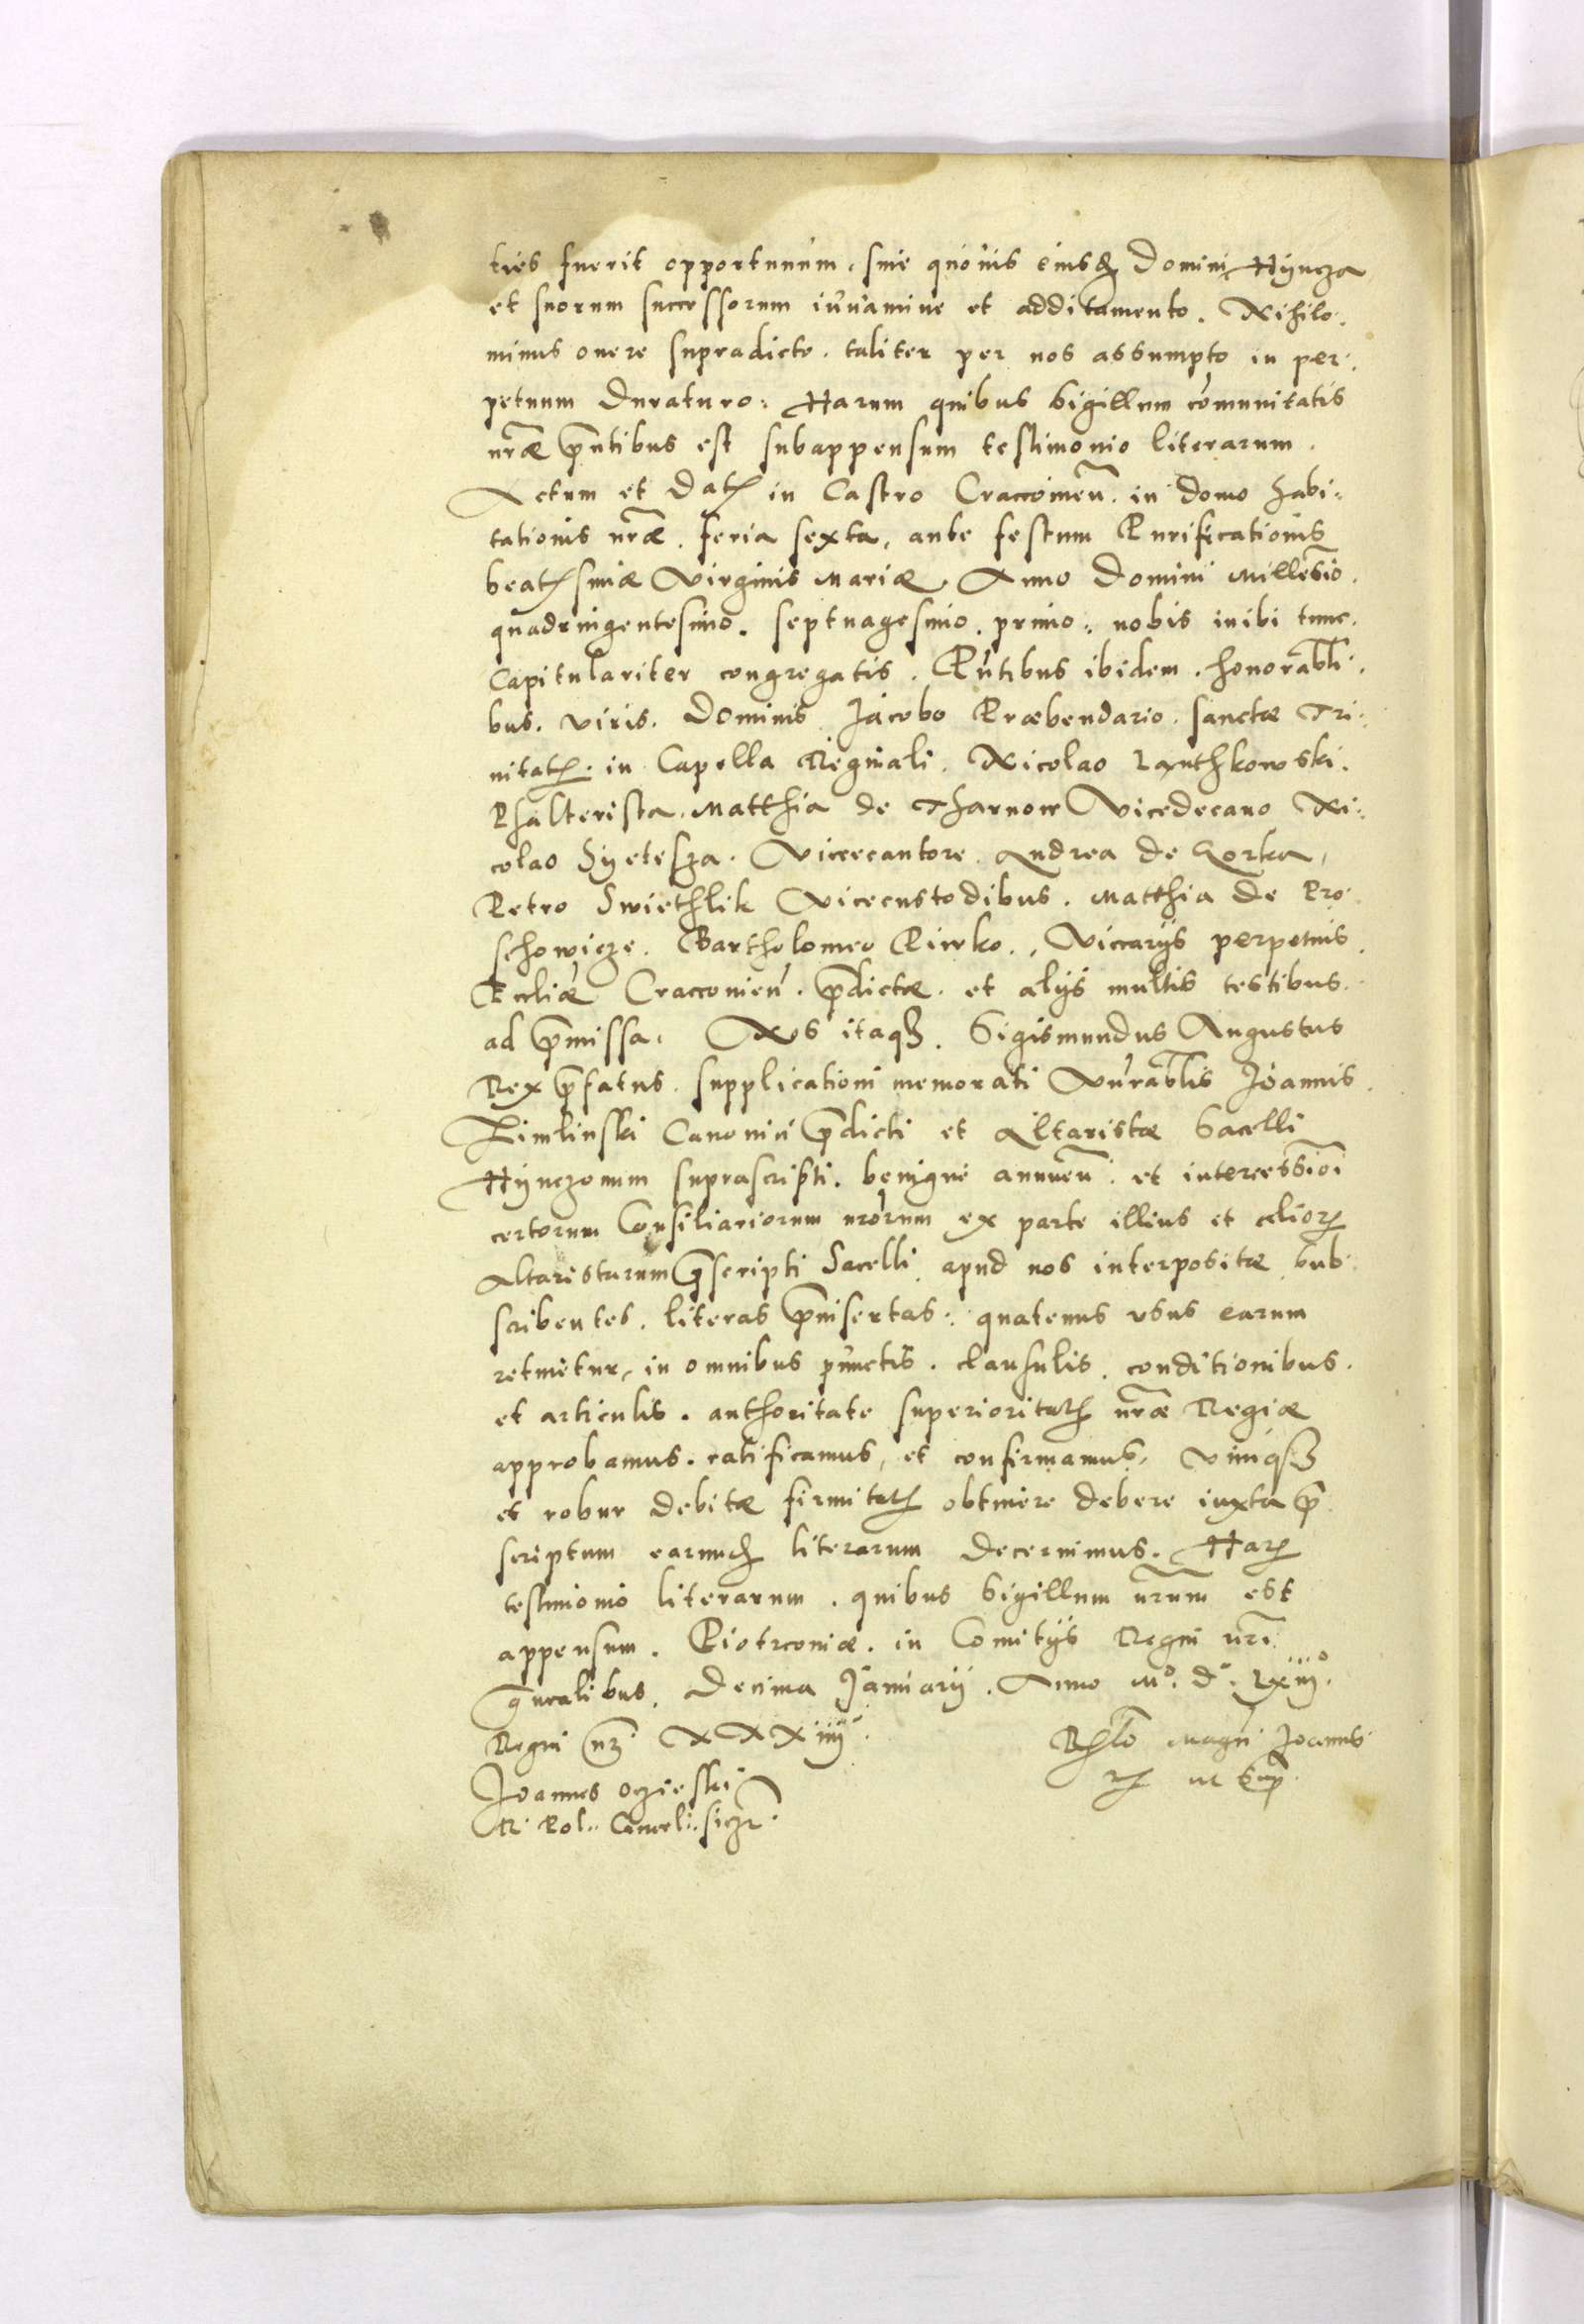 ties fuerit opportunum, sine quovis eiusdẽ Domini Hyncza
et suorum successorum iuvamine et additamento. Nihilo:
minus onere supradicto. taliter per nos assumpto in per:
petuum duraturo: Harum quibus sigillum cõmunitatis
nr̃æ p̃ntibus est subappensum testimonio literarum.
Actum et Dat̃ in Castro Craccovieñ. in domo habi:
tationis nr̃æ. feria sexta, ante festum Purificationis
beatissimæ Virginis Mariæ. Anno Domini Millesĩo.
quadringentesimo. septuagesimo. primo: nobis inibi tunc.
Capitulariter congregatis. Pñtibus ibidem. honorabli:
bus. viris. Dominis Jacobo Præbendario. sanctæ Tri:
nitatis. in Capella Reginali. Nicolao Lanthkowski.
Psalterista. Matthia de Tharnow Vicedecano Ni:
colao Syetesza. Vicecantore. Andrea de Gorka,
Petro Swiethlik Vicecustodibus. Matthia de Pro
schowicze. Bartholomeo Piwko., Viccarijs perpetuis.
Eccliæ Craccovieñ. p̃dictæ. et alijs multis testibus.
ad p̃missa. Nos itaq3. Sigismundus Augustus
Rex p̃fatus. supplicationi memorati Vnrablis Joannis.
Zimlinski Canonici p̃dicti et Altaristæ Sacelli
Hynczonum suprascripti. benigne annueñ. et intercessiõi
certorum Consiliariorum nrõrum ex parte illius et alior̃
Altaristarum p̃scripti Sacelli apud nos interpositæ sub:
scribentes. literas p̃insertas: quatenus usus earum
retinetur, in omnibus punctis. clausulis. conditionibus.
et articulis. authoritate superioritatis nr̃æ Regiæ
approbamus. ratificamus, et confirmamus. vimq3
et robur debitæ firmitatis obtinere debere iuxta p̃
scriptum earund̃ literarum decernimus. Har̃
testimonio literarum. quibus Sigillum nr̃um est
appensum. Piotrcoviæ. in Comitijs Regni nr̃i.
g̃nralibus. Decima Januarij. Anno Mº. dº. Lxiijº.
Regni nr̃i XXXiiijº.
Relõ Magci Joannis
Joannes Oczieski
ut sup̃.
R. Pol. Cancel:. sczr̃.